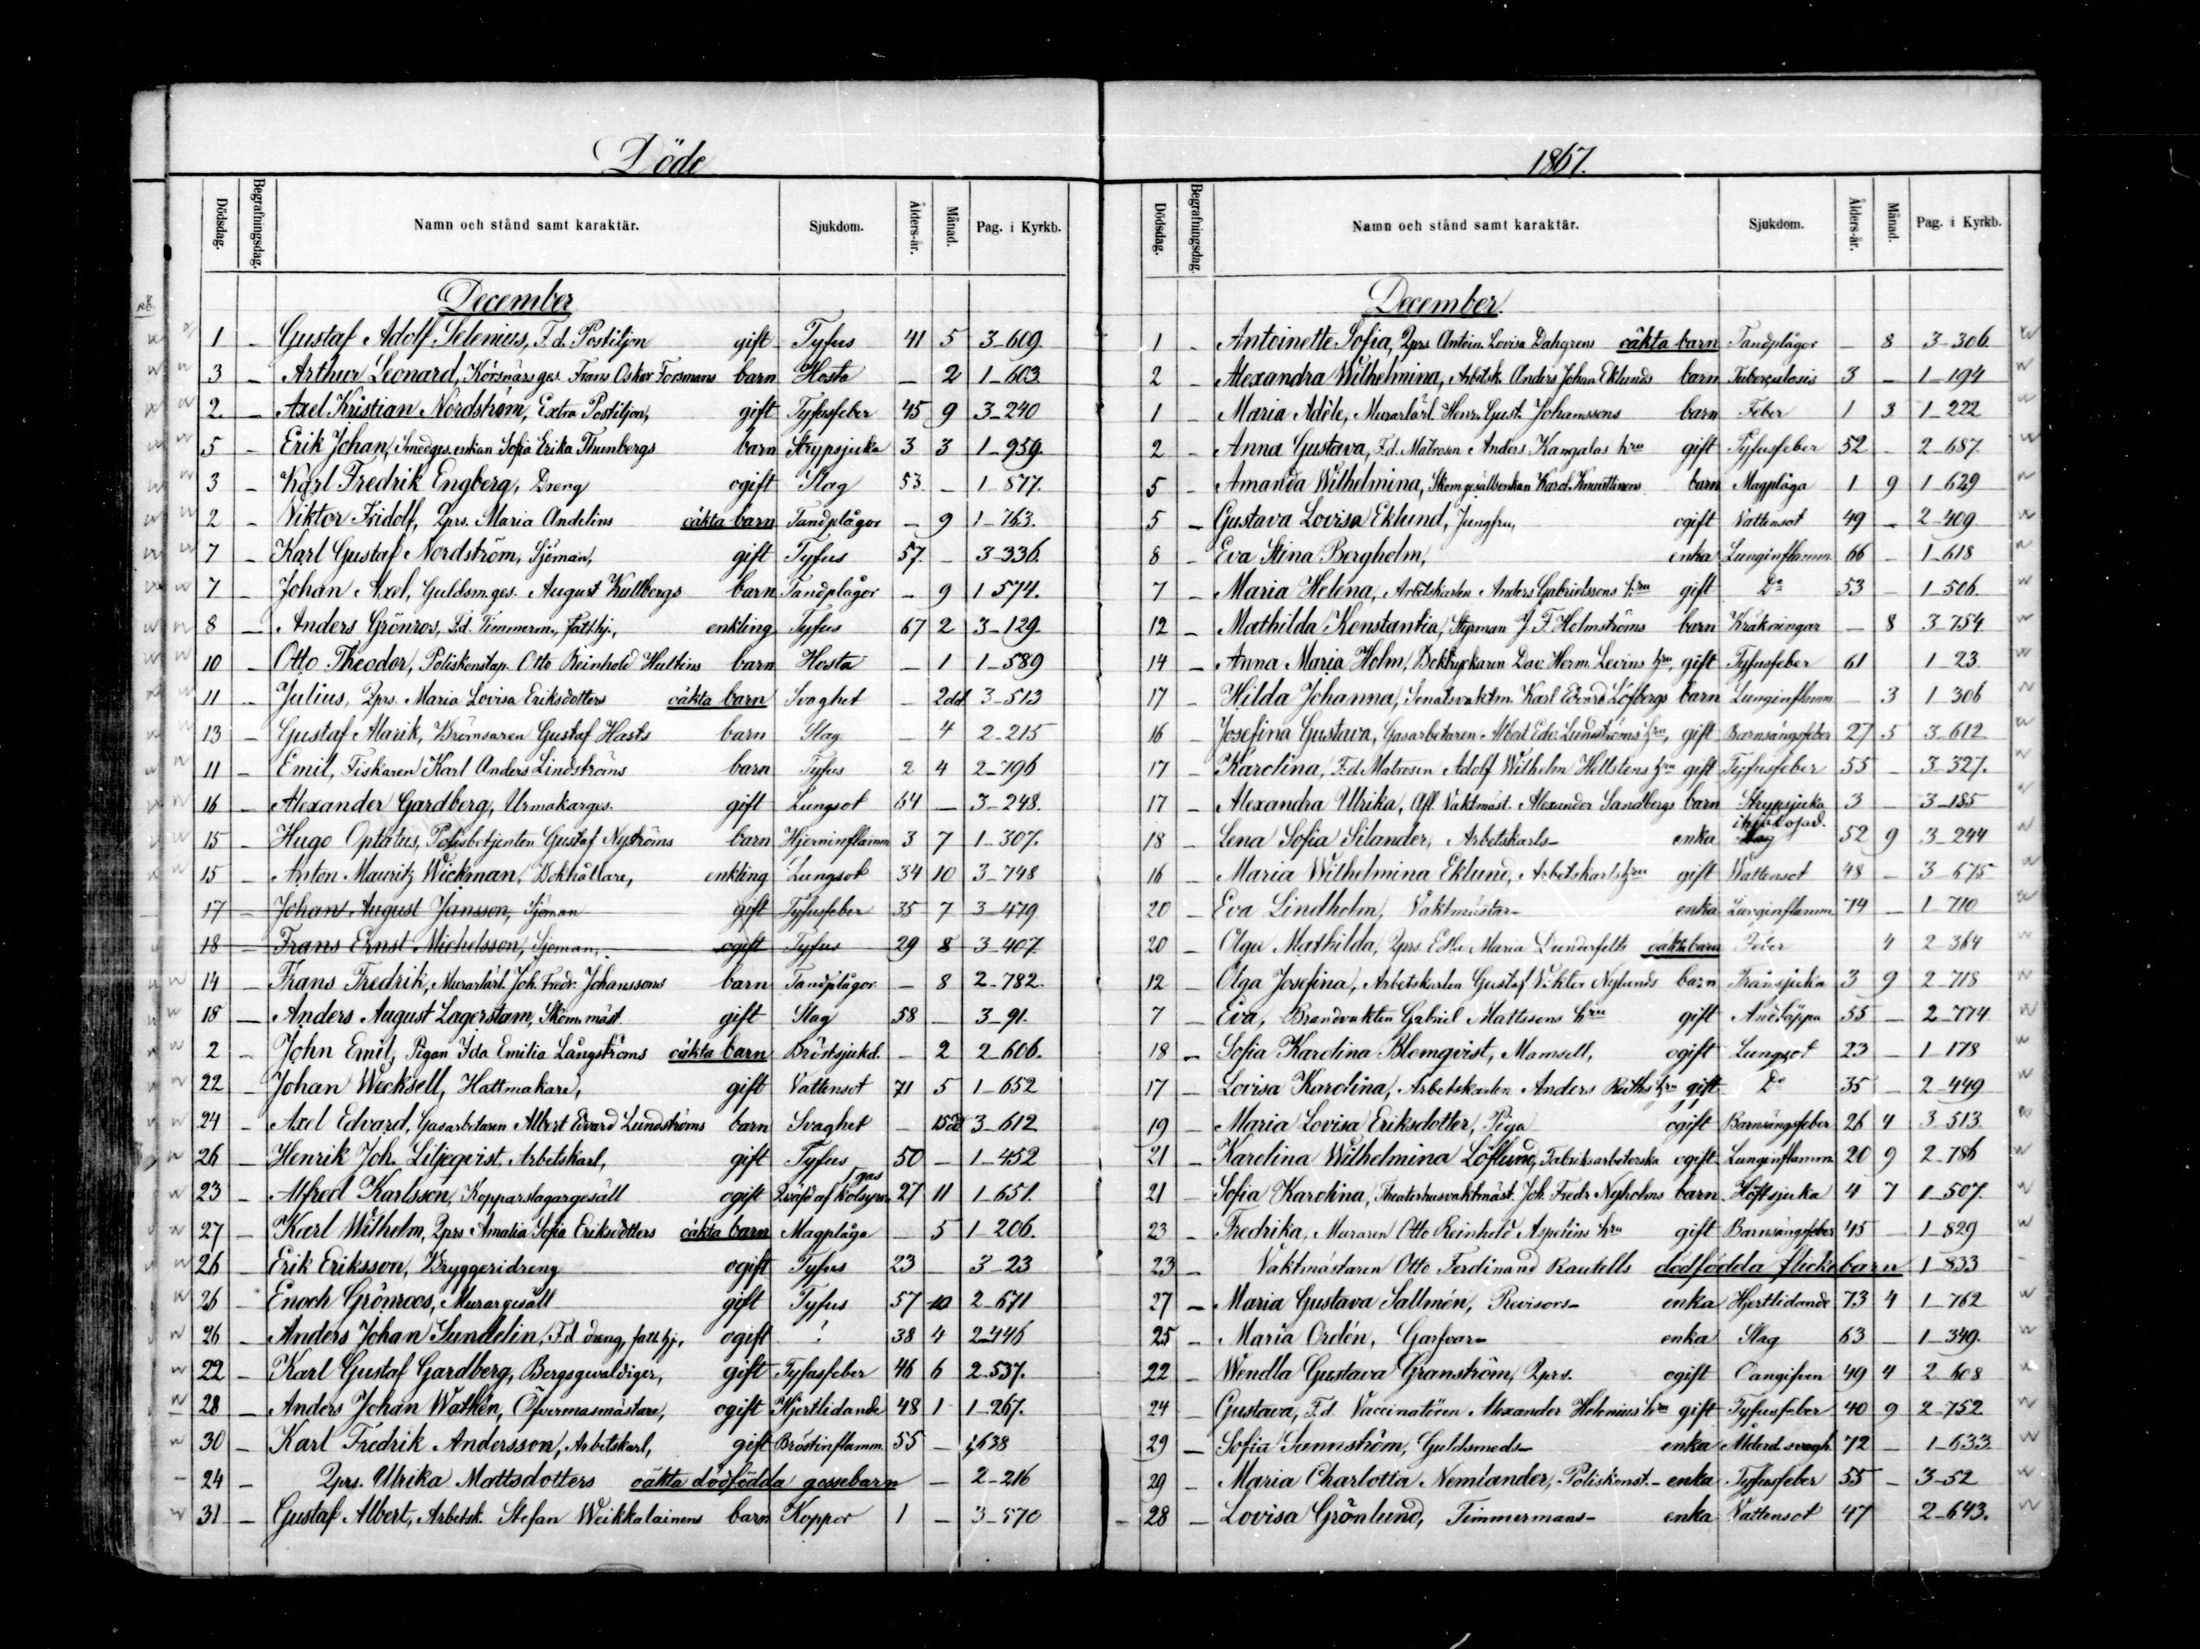 Döde
Dödsdag. Begrafningsdag. Namn och stånd samt karaktär. Sjukdom. Ålders-år. Månad. Pag. i Kyrkb.
December
1 – Gustaf Adolf Selenius, F.d. Postiljon gift Tyfus 41 5 3-609.
3 – Arthur Leonard, Körsnärsges. Frans Oskar Forsmans barn Hosta – 2 1-603
2 – Axel Kristian Nordström, Extra Postiljon, gift Tyfusfeber 45 9 3-240
5 – Erik Johan, Smedges. enkan Sofia Erika Thunbergs barn Strypsjuka 3 3 1-959.
3 – Karl Fredrik Engberg, Dreng ogift Slag 53 – 1-877.
2 – Viktor Fridolf, Qprs. Maria Andelins oäkta barn Tandplågor – 9 1-763.
7 – Karl Gustaf Nordström, Sjöman, gift Tyfus 57. – 3-336.
7 – Johan Axel, Guldsm.ges. August Kullbergs barn Tandplågor – 9 1 574.
8 – Anders Grönros, F.d. Timmerm., fatthj., enkling Tyfus 67 2 3-129.
10 – Otto Theodor, Poliskonstap. Otto Reinhold Hultins barn Hosta – 1 1-589
11 – Julius, Qprs. Maria Lovisa Eriksdotters oäkta barn Svaghet – 2dd 3-513
13 – Gustaf Marik, Brömsaren Gustaf Hasts barn Slag – 4 2-215
11 – Emil, Fiskaren Karl Anders Lindströms barn Tyfus 2 4 2-796
16 – Alexander Gardberg, Urmakarges. gift Lungsot 64 – 3-248.
15 – Hugo Optatus, Polisbetjenten Gustaf Nyströms barn Hjerninflamm 3 7 1-307.
15 – Anton Mauritz Wickman, Bokhållare, enkling Lungsot 34 10 3-748
17 – Johan August Jansson, Sjöman gift Tyfusfeber 35 7 3-479
18 – Frans Ernst Michelsson, Sjöman, ogift Tyfus 29 8 3-407
14 – Frans Fredrik, Murarlärl. Joh. Fredr. Johanssons barn Tandplågor – 8 2-782.
18 – Anders August Lagerstam, Skom. mäst. gift Slag 58 – 3-91.
2 – John Emil, Pigan Ida Emilia Långströms oäkta barn Bröstsjukd. – 2 2-606.
22 – Johan Wecksell, Hattmakare, gift Vattensot 71 5 1-652
24 – Axel Edvard, Gasarbetaren Albert Edvard Lundströms barn Svaghet – 15dd 3-612
26 – Henrik Joh. Liljeqvist, Arbetskarl, gift Tyfus 50 – 1-452
23 – Alfred Karlsson, Kopparslagargesäll ogift Qväfd af kolsyre gas 27 11 1-651.
27 – Karl Wilhelm, Qprs Amalia Sofia Eriksdotters oäkta barn Magplåga – 5 1-206.
26 – Erik Eriksson, Bryggeridreng ogift Tyfus 23 3-23
26 – Enoch Grönroos, Murargesäll gift Tyfus 57 10 2-671
26 – Anders Johan Sundelin, F.d dreng, fatthj, ogift ? 38 4 2-446
22 – Karl Gustaf Gardberg, Bergsgevaldiger, gift Tyfusfeber 46 6 2-537.
28 – Anders Johan Wathén, Öfvermasmästare, ogift Hjertlidande 48 1 1-267.
30 – Karl Fredrik Andersson, Arbetskarl, gift Bröstinflamm. 55 – 638
24 – Qprs. Ulrika Mattsdotters oäkta dödfödda gossebarn – 2-216
31 – Gustaf Albert, Arbetsk. Stefan Weikkalainens barn Koppor 1 – 3-570
1867.
Dödsdag. Begrafningsdag. Namn och stånd samt karaktär. Sjukdom. Ålders-år. Månad. Pag. i Kyrkb.
December.
1 – Antoinette Sofia, Qprs Antoin. Lovisa Dahgrens oäkta barn Tandplågor – 8 3-306
2 – Alexandra Wilhelmina, Arbetsk. Anders Johan Eklunds barn Tuberculosis 3 – 1-194
1 – Maria Adéle, Murarlärl. Henr. Gust. Johanssons barn Feber 1 3 1-222
2 – Anna Gustava, F.d. Matrosen Anders Kangalas hru gift Tyfusfeber 52 – 2-687.
5 – Amanda Wilhelmina, Skomgesällsenkan Karol. Knuuttinens barn Magplåga 1 9 1-629
5 – Gustava Lovisa Eklund, Jungfru, ogift Vattensot 49 – 2-409
8 – Eva Stina Bergholm, enka Lunginflamm 66 – 1-618
7 – Maria Helena, Arbetskarlen Anders Gabrielssons hru gift Do 53 – 1-506.
12 – Mathilda Konstantia, Styrman J. F. Holmströms barn Kräkningar – 8 3-754
14 – Anna Maria Holm, Boktryckaren Dav. Herm. Levins hru, gift Tyfusfeber 61 1-23
17 – Hilda Johanna, Senatsvaktm. Karl Edvard Löfbergs barn Lunginflamm – 3 1-306
16 – Josefina Gustava, Gasarbetaren Albert Edv. Lundströms hru, gift Barnsängsfeber 27 5 3-612
17 – Karolina, F.d Matrosen Adolf Wilhelm Hellstens hru gift Tyfusfeber 55 – 3-327.
17 – Alexandra Ulrika, Afl. Vaktmäst. Alexander Sandbergs barn Strypsjuka 3 – 3-185
18 – Lena Sofia Silander, Arbetskarls- enka 52 9 3-244
16 – Maria Wilhelmina Eklund, Arbetskarls hru gift Wattensot 48 – 3-675
20 – Eva Lindholm, Vaktmästar- enka Lunginflamm 74 – 1-710
20 – Olga Mathilda, Qprs. Edla Maria Dunderfelts oäkta barn Feber 4 2-364
12 – Olga Josefina, Arbetskarlen Gustaf Viktor Nylunds barn Trånsjuka 3 9 2-718
7 – Eva, Brandvakten Gabriel Mattssons hru gift Andtäppa 55 – 2-774
18 – Sofia Karolina Blomqvist, Mamsell, ogift Lungsot 23 – 1-178
17 – Lovisa Karolina, Arbetskarlen Anders Ruths hru gift Do 35 – 2-449
19 – Maria Lovisa Eriksdotter, Piga ogift Barnsängsfeber 26 4 3 513
21 – Karolina Wilhelmina Löflund, Fabriksarbeterska ogift Lunginflamm 20 9 2-786
21 – Sofia Karolina, Theaterhusvaktmäst. Joh. Fredr Nyholms barn Höftsjuka 4 7 1-507.
23 – Fredrika, Muraren Otto Reinhold Aspelins hru gift Barnsängsfeber 45 – 1-829
23 – Vaktmästaren Otto Ferdinand Rautells dödfödda flickebarn 1-833
27 – Maria Gustava Sallmén, Revisors- enka Hjertlidande 73 4 1-762
25 – Maria Ordén, Garfvar- enka Slag 63 – 1-349.
22 – Wendla Gustava Granström, Qprs. ogift Oangifven 49 4 2-608
24 – Gustava, F.d. Vaccinatören Alexander Helenius hru gift Tyfusfeber 40 9 2-752
29 – Sofia Sannström, Guldsmeds- enka Ålderd. svagh. 72 – 1-633
29 – Maria Charlotta Nemlander, Poliskonst.- enka Tyfusfeber 55 – 3-52
28 – Lovisa Grönlund, Timmermans- enka Vattensot 47 2-643.